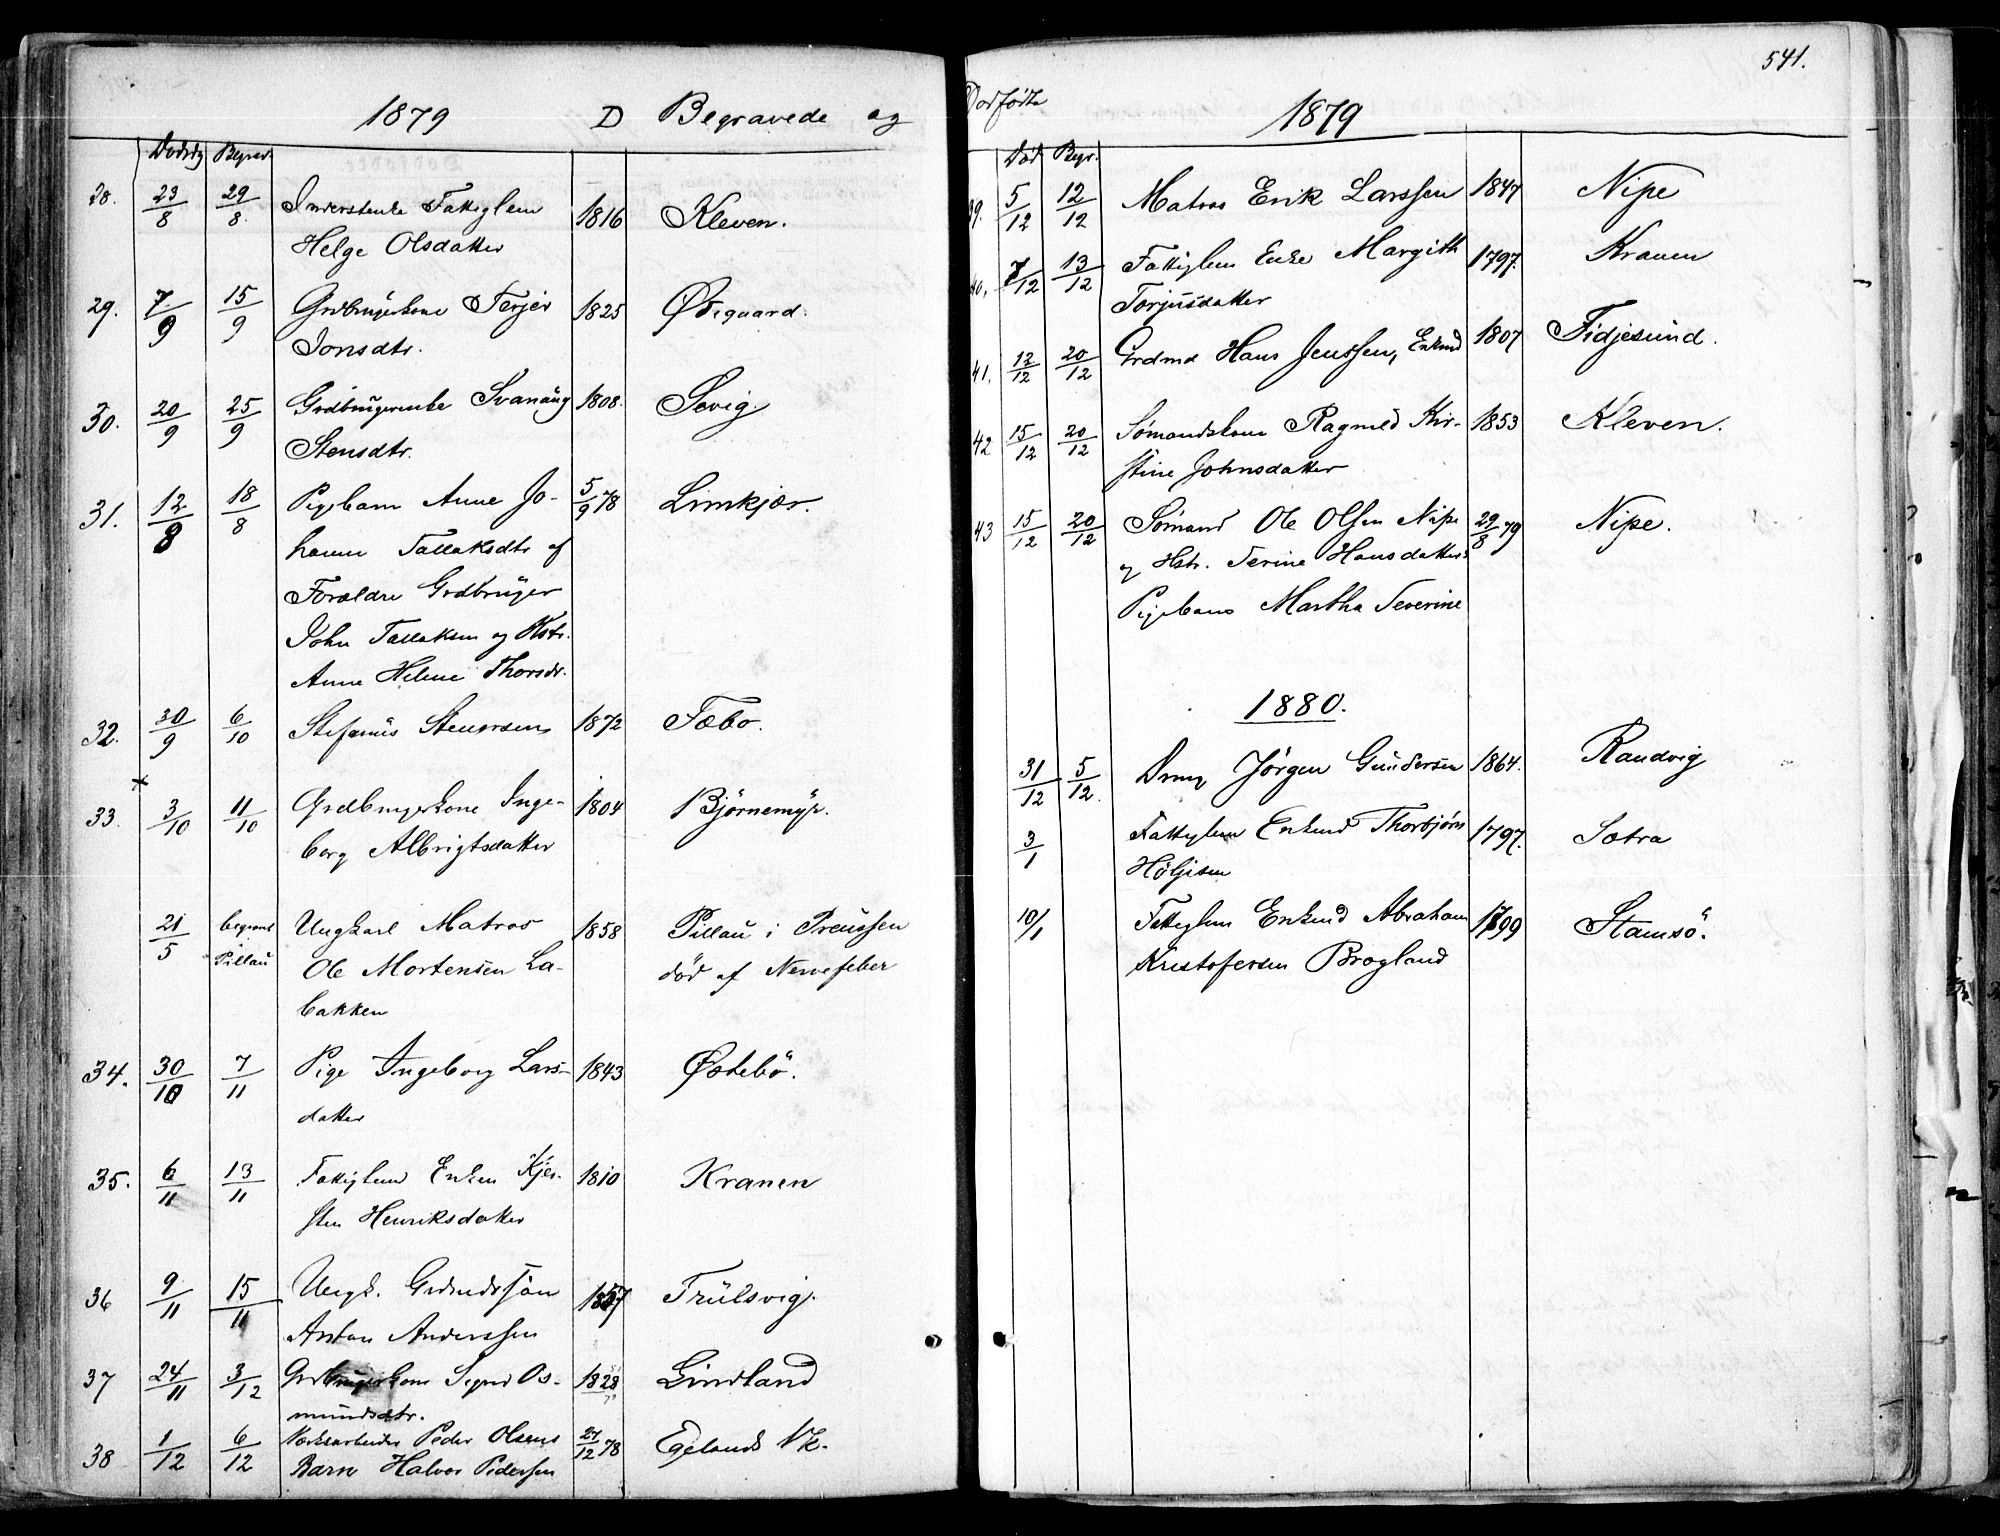 1879 D Begravede og
Dødsdg Begrav.
28. 23/8 29/8 Fattiglem 1816 Kleven.
Helge Olsdatter
29. 7/9 15/9 Grdbrugerkone Terjer 1825 Ødegaard.
Jonsdtr.
30. 20/9 25/9 Grdbrugerenke Svanaug 1808. Sevig.
Stensdtr.
31. 12/8 18/8 Pigebarn Anne Jo- 5/9 78 Limkjær.
hanne Tallaksdtr af
Forældre Grdbruger
John Tallaksen og Hstr.
Anne Helene Thorsdr.
32. 30/9 6/10 Stefanus Stenersen 1872 Fæbo.
33. 3/10 11/10 Grdbrugerkone Inge- 1804 Bjørnemyr.
borg Albrigtsdatter
21/5 begravet Pillau Ungkarl Matros 1858 Pillau i Preussen
Ole Mortensen La- død af Nervefeber
bakken
34. 30/10 7/11 Pige Ingeborg Lars- 1843 Østebö.
datter
35. 6/11 13/11 Fattiglem Enken Kjer- 1810 Kranen
sten Henriksdatter
36 9/11 15/11 Ungk. Grdmdssøn 1857 Trulsvig.
Anton Anderssen
37 24/11 3/12 Grdbrugerkone Signe Os- 1828 Lindland
mundsdtr.
38 1/12 6/12 Værksarbeider Peder Olsens 27/12 78 Egelands Vk.
Barn Halvor Pedersen
541.
Dødfødte 1879
Død Begr.
39. 5/12 12/12 Matros Erik Larssen 1847 Nipe
40. 7/12 13/12 Fattiglem Enke Margith 1797. Kranen
Torjusdatter
41. 12/12 20/12 Grdmd Hans Jenssen, Enkmd 1807 Fidjesund.
42 15/12 20/12 Sømandskone Ragnild Kir- 1853 Kleven.
stine Johnsdatter
43 15/12 20/12 Sømand Ole Olsen Nipe 29/8 79 Nipe.
og Hstr. Terine Hansdatters
Pigebarn Martha Severine
1880.
31/12 5/12. Dreng Jörgen Gundersen 1864. Randvig
3/1 Fattiglem Enkmd Thorbjørn 1797. Sotra
Höljesen
10/1 Fattiglem Enkmd Abraham 1799 Stamsö.
Kristofersen Brogland